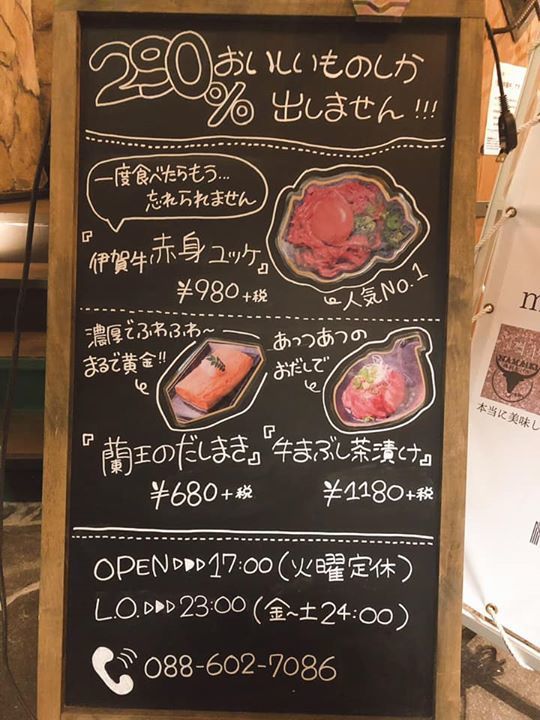 290%おいしいものしか
出しません!!!
一度食べたらもう…
忘れられません
『伊賀牛赤身ユッケ』
¥980+税
人気No.1
濃厚でふわふわ~
まるで黄金!!
『蘭王のだしまき』
¥680+税
あっつあつの
おだしで
『牛まぶし茶漬け』
¥1180+税
OPEN▷▷▷17:00(火曜定休)
L.O.▷▷▷23:00(金~土24:00)
088-602-7086
本当に美味し